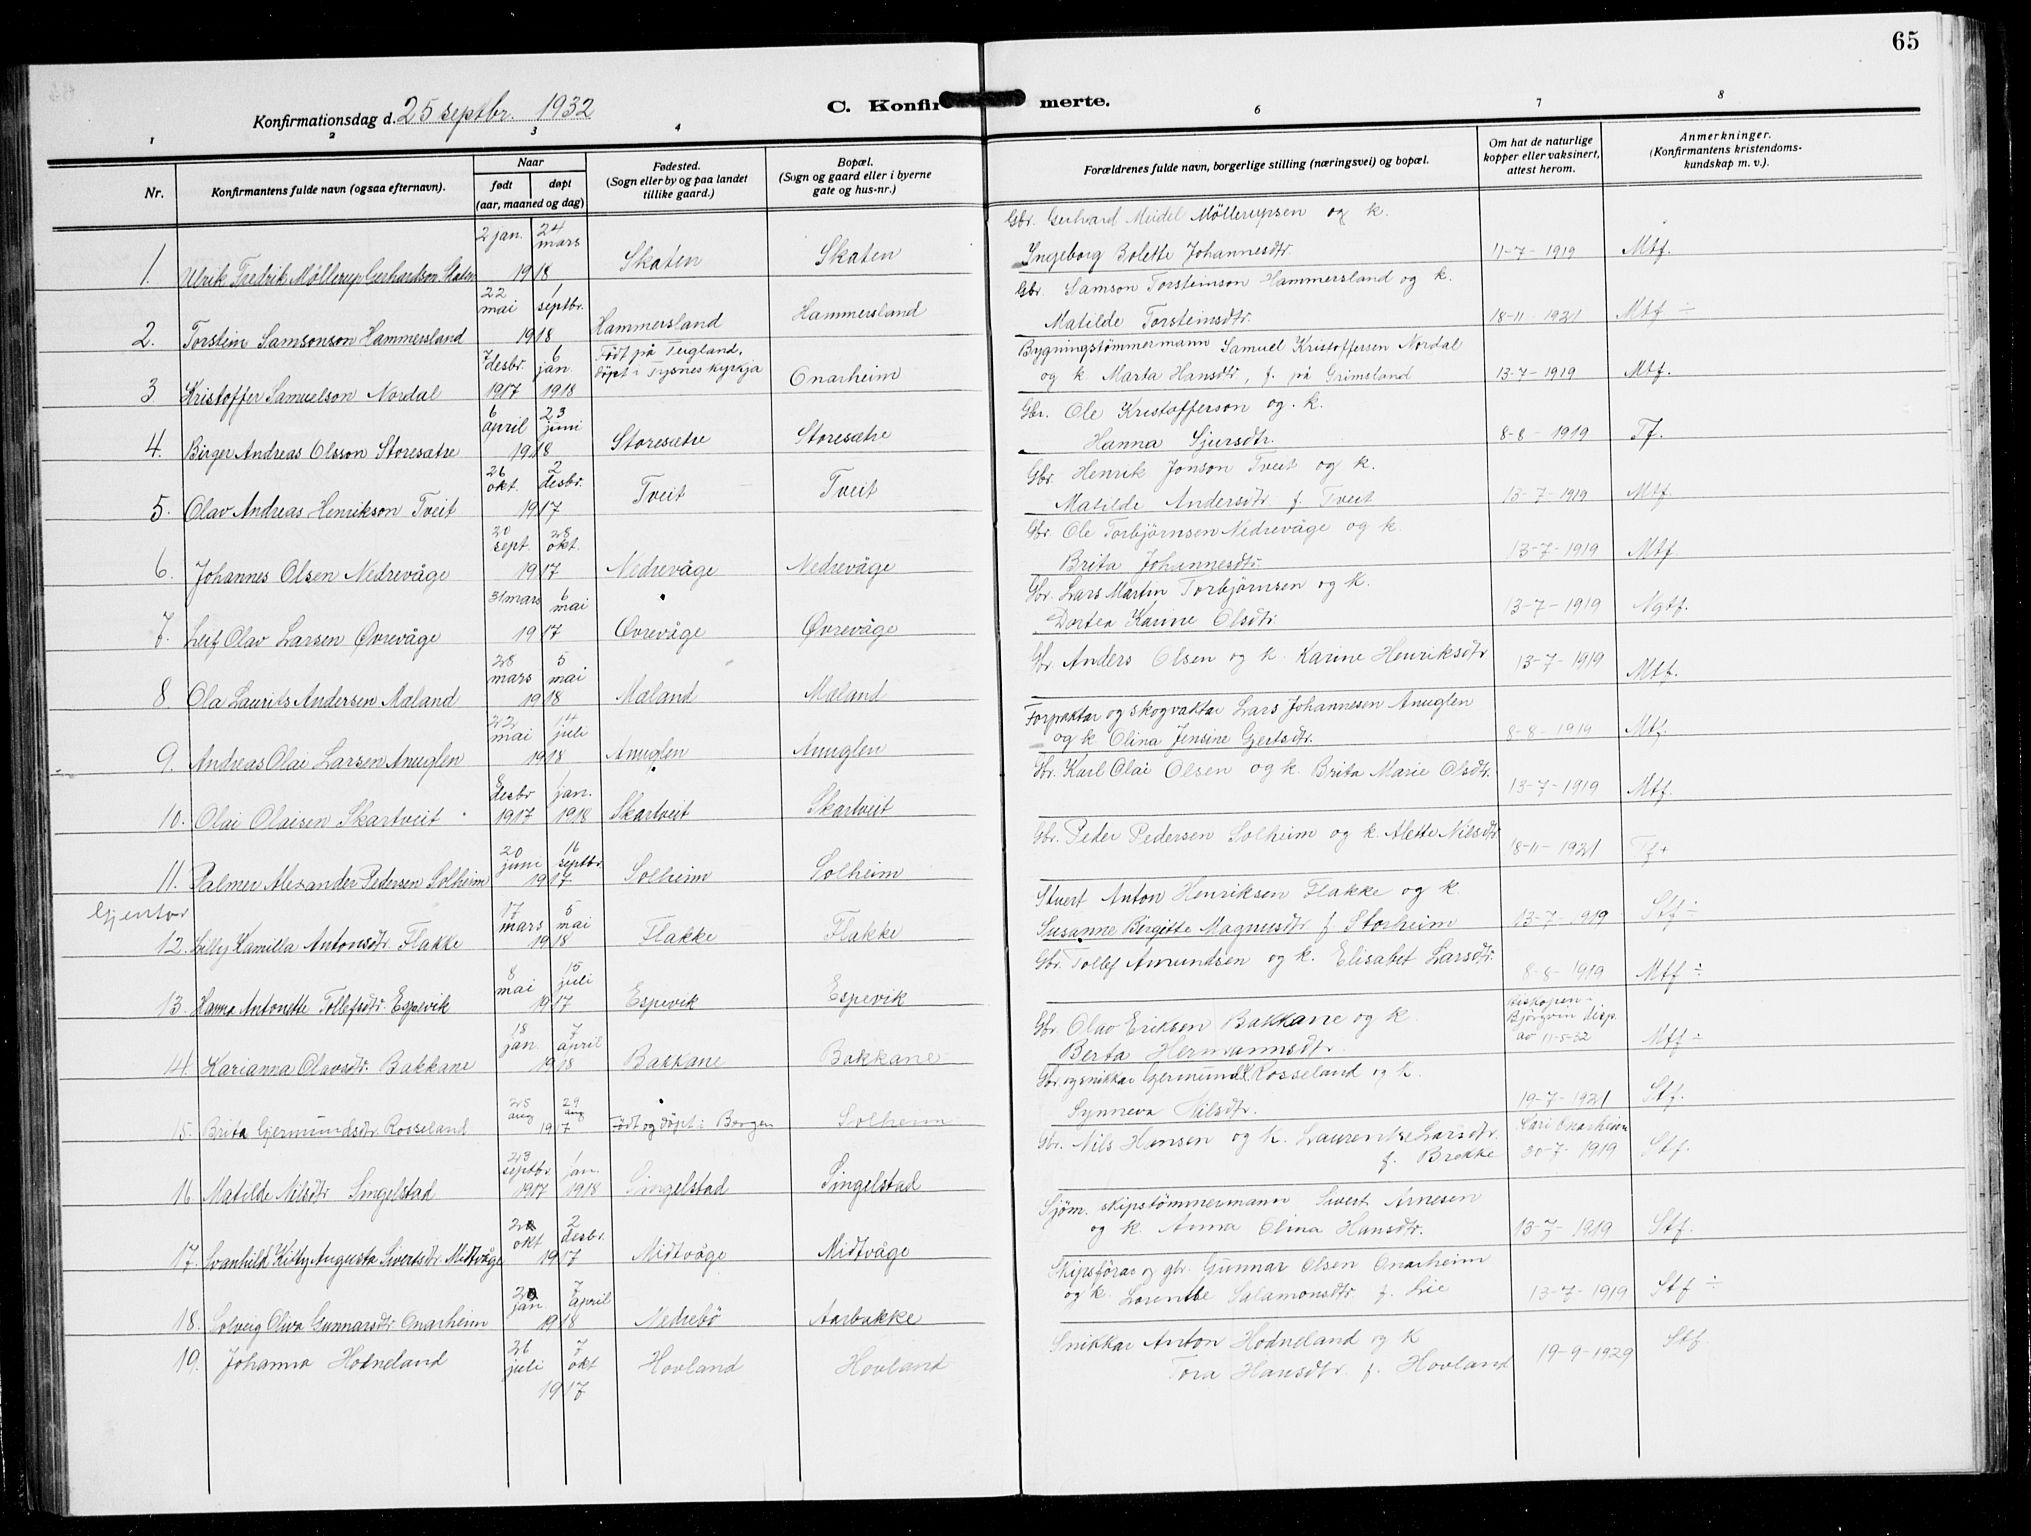 65
Konfirmationsdag d. 25 septbr. 1932
C. Konfir merte.
1 2 3 4 6 7 8
Nr.
Konfirmantens fulde navn (ogsaa efternavn).
Naar
født døpt
(aar, maaned og dag)
Fødested.
(Sogn eller by og paa landet
tillike gaard.)
Bopæl.
(Sogn og gaard eller i byerne
gate og hus-nr.)
Forældrenes fulde navn, borgerlige stilling (næringsvei) og bopæl.
Om hat de naturlige
kopper eller vaksinert,
attest herom.
Anmerkninger.
(Konfirmantens kristendoms-
kundskap m. v.).
Gbr. Gerhard Meidel Möllerupsen og k.
2 jan. 24 mars
1. Ulrik Fredrik Møllerup Gerhardson Skaten 1918 Skaten Skaten Ingeborg Bolette Johannesdtr. 11-7-1919 Mtf.
22 mai 1 septbr. Gbr. Samson Torsteinson Hammersland og k.
2. Torstein Samsonson Hammersland 1918 Hammersland Hammersland Matilde Torsteinsdtr. 18-11-1921 Mtf ÷
7 desbr. 6 jan. Født på Teigland, Bygningstömmermann Samuel Kristoffersen Nordal
døpt i Tysnes kyrkja
3 Kristoffer Samuelson Nordal 1917 1918 Onarheim og k Marta Hansdtr, f. på Grimsland 13-7-1919 Mtf.
6 april 23 juni Gbr. Ole Kristofferson og. k.
4. Birger Andreas Olsson Storesætre 1918 Storesætre Storesætre Hanna Sjursdtr. 8-8-1919 Tf.
26 okt. 2 desbr. Gbr. Henrik Jonson Tveit og k.
5. Olav Andreas Henrikson Tveit 1917 Tveit Tveit Matilde Andersdtr f Tveit 13-7-1919 Mtf.
20 sept. 28 okt. Gbr Ole Torbjørnsen Nedrevåge og k.
6. Johannes Olsen Nedrevåge 1917 Nedrevåge Nedrevåge Brita Johannesdtr 13-7-1919 Mtf.
31 mars 6 mai Gbr. Lars Martin Torbjørnsen og k.
7. Leif Olav Larsen Øvrevåge 1917 Øvrevåge Øvrevåge Dortea Karine Olsdtr. 13-7-1919 Ngtf.
28 mars 5 mai Gbr Anders Olsen og k. Karine Henriksdtr
8. Ola Laurits Andersen Maland 1918 Maland Maland 13-7-1919 Mtf.
22 mai 14 juli Forpaktar og skogvaktar Lars Johannesen Anuglen
9. Andreas Olai Larsen Anuglen 1918 Anuglen Anuglen og k Olina Jensine Gjertsdtr. 8-8-1919 Mtf.
8 desbr 1 jan. Gbr. Karl Olai Olsen og k. Brita Marie Olsdtr.
10. Olai Olaisen Skartveit 1917 1918 Skartveit Skartveit 13-7-1919 Mtf.
20 juni 16 septbr Gbr. Peder Pedersen Solheim og k. Alette Nilsdtr
11. Palmer Alexander Pedersen Solheim 1917 Solheim Solheim 18-11-1921 Tf+
Gjentor 17 mars 5 mai Stuert Anton Henriksen Flakke og k.
12. Lilly Kamilla Antonsdtr. Flakke 1918 Flakke Flakke Susanne Birgitte Magnusdtr f Storheim 13-7-1919 Stf ÷
8 mai 15 juli Gbr. Tollef Amundsen og k. Elisabet Larsdtr.
13. Hanna Antonette Tollefsdtr. Espevik 1917 Espevik Espevik 8-8-1919 Mtf ÷
18 jan. 7 april Gbr. Olav Eriksen Bakkane og k. Biskopen i
Bjørgvin disp.
14. Karianna Olavsdtr. Bakkane 1918 Bakkane Bakkane Berta Hermannsdtr. av 11-5-32 Mtf ÷
25 aug 29 aug Gbr. og snikkar Gjermund Rosseland og k.
15. Brita Gjermundsdtr Rosseland 1917 Født og døpt i Bergen Solheim Synneva Nilsdtr. 19-7-1921 Stf.
23 septbr 1 jan. Gbr. Nils Hansen og k. Laurentse Larsdtr. Kari Onarheim
16. Matilde Nilsdtr Singelstad 1917 1918 Singelstad Singelstad f. Brekke 30-7-1919 Stf.
okt 2 desbr. Sjøm. skipstömmermann Sivert Arnesen
17. Svanhild Kitty Augusta Sivertsdtr Midtvåge 1917 Midtvåge Midtvåge og k Anna Olina Hansdtr. 13-7-1919 Stf.
jan 7 april Skipsförar og gbr. Gunnar Olsen Onarheim
18. Solveig Oliva Gunnarsdtr Onarheim 1918 Nedrebö Aarbakke og k. Lorentse Salamonsdtr f. Lie 13-7-1919 Stf ÷
26 juli 7 okt Snikkar Anton Hodneland og k
19. Johanna Hodneland 1917 Hovland Hovland Tora Hansdtr. f. Hovland 19-9-1929 Stf.